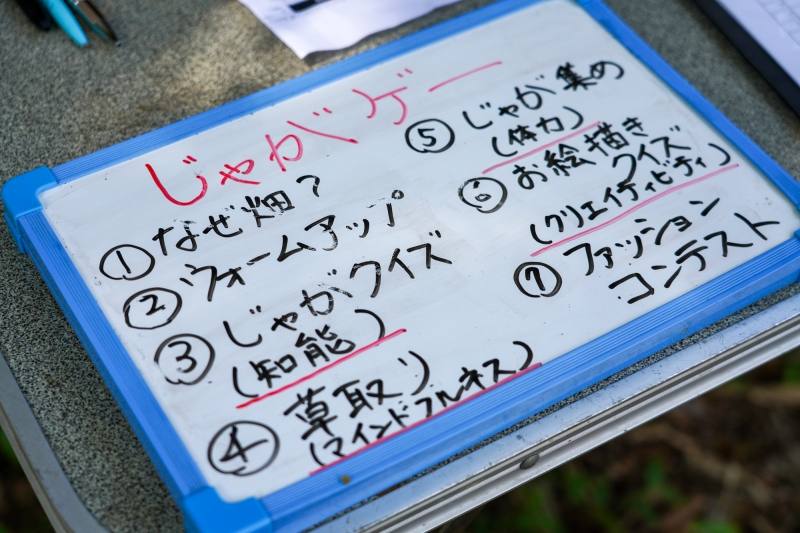 じゃがゲー
① なぜ畑？
② ウォームアップ
③ じゃがクイズ
(知能)
④ 草取り
(マインドフルネス)
⑤ じゃが集め
(体力)
⑥ お絵描き
クイズ
(クリエイティビティ)
⑦ ファッション
コンテスト